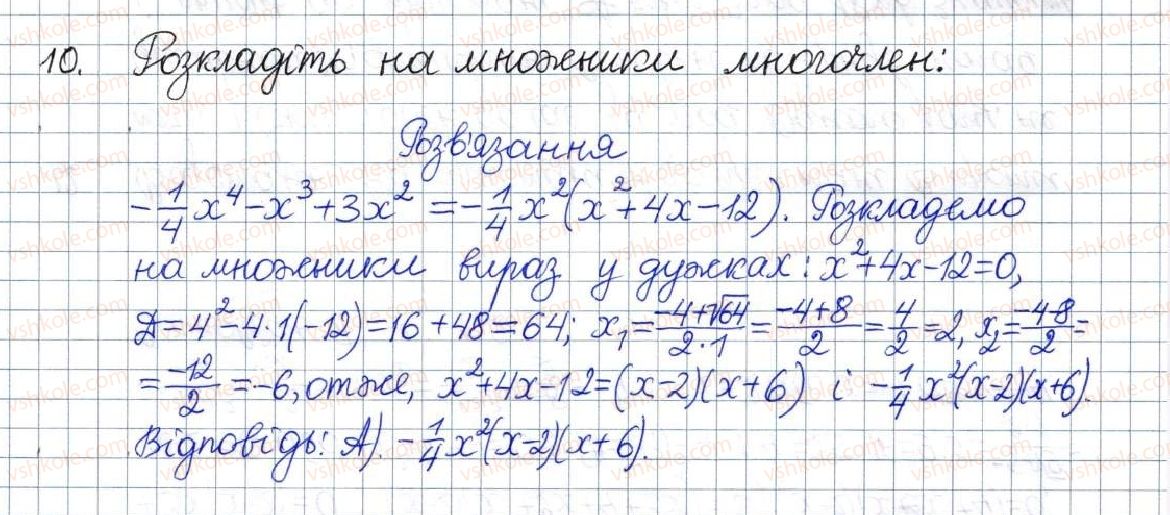 10. Розкладіть на множники многочлен:
Розв'язання
-1/4 x⁴ - x³ + 3x² = -1/4 x²(x² + 4x - 12). Розкладемо
на множники вираз у дужках: x² + 4x - 12 = 0,
Д = 4² - 4·1(-12) = 16 + 48 = 64; x₁ = (-4+√64)/(2·1) = (-4+8)/2 = 4/2 = 2, x₂ = (-4-8)/2 =
= -12/2 = -6, отже, x² + 4x - 12 = (x-2)(x+6) і -1/4 x²(x-2)(x+6).
Відповідь: А). -1/4 x²(x-2)(x+6).